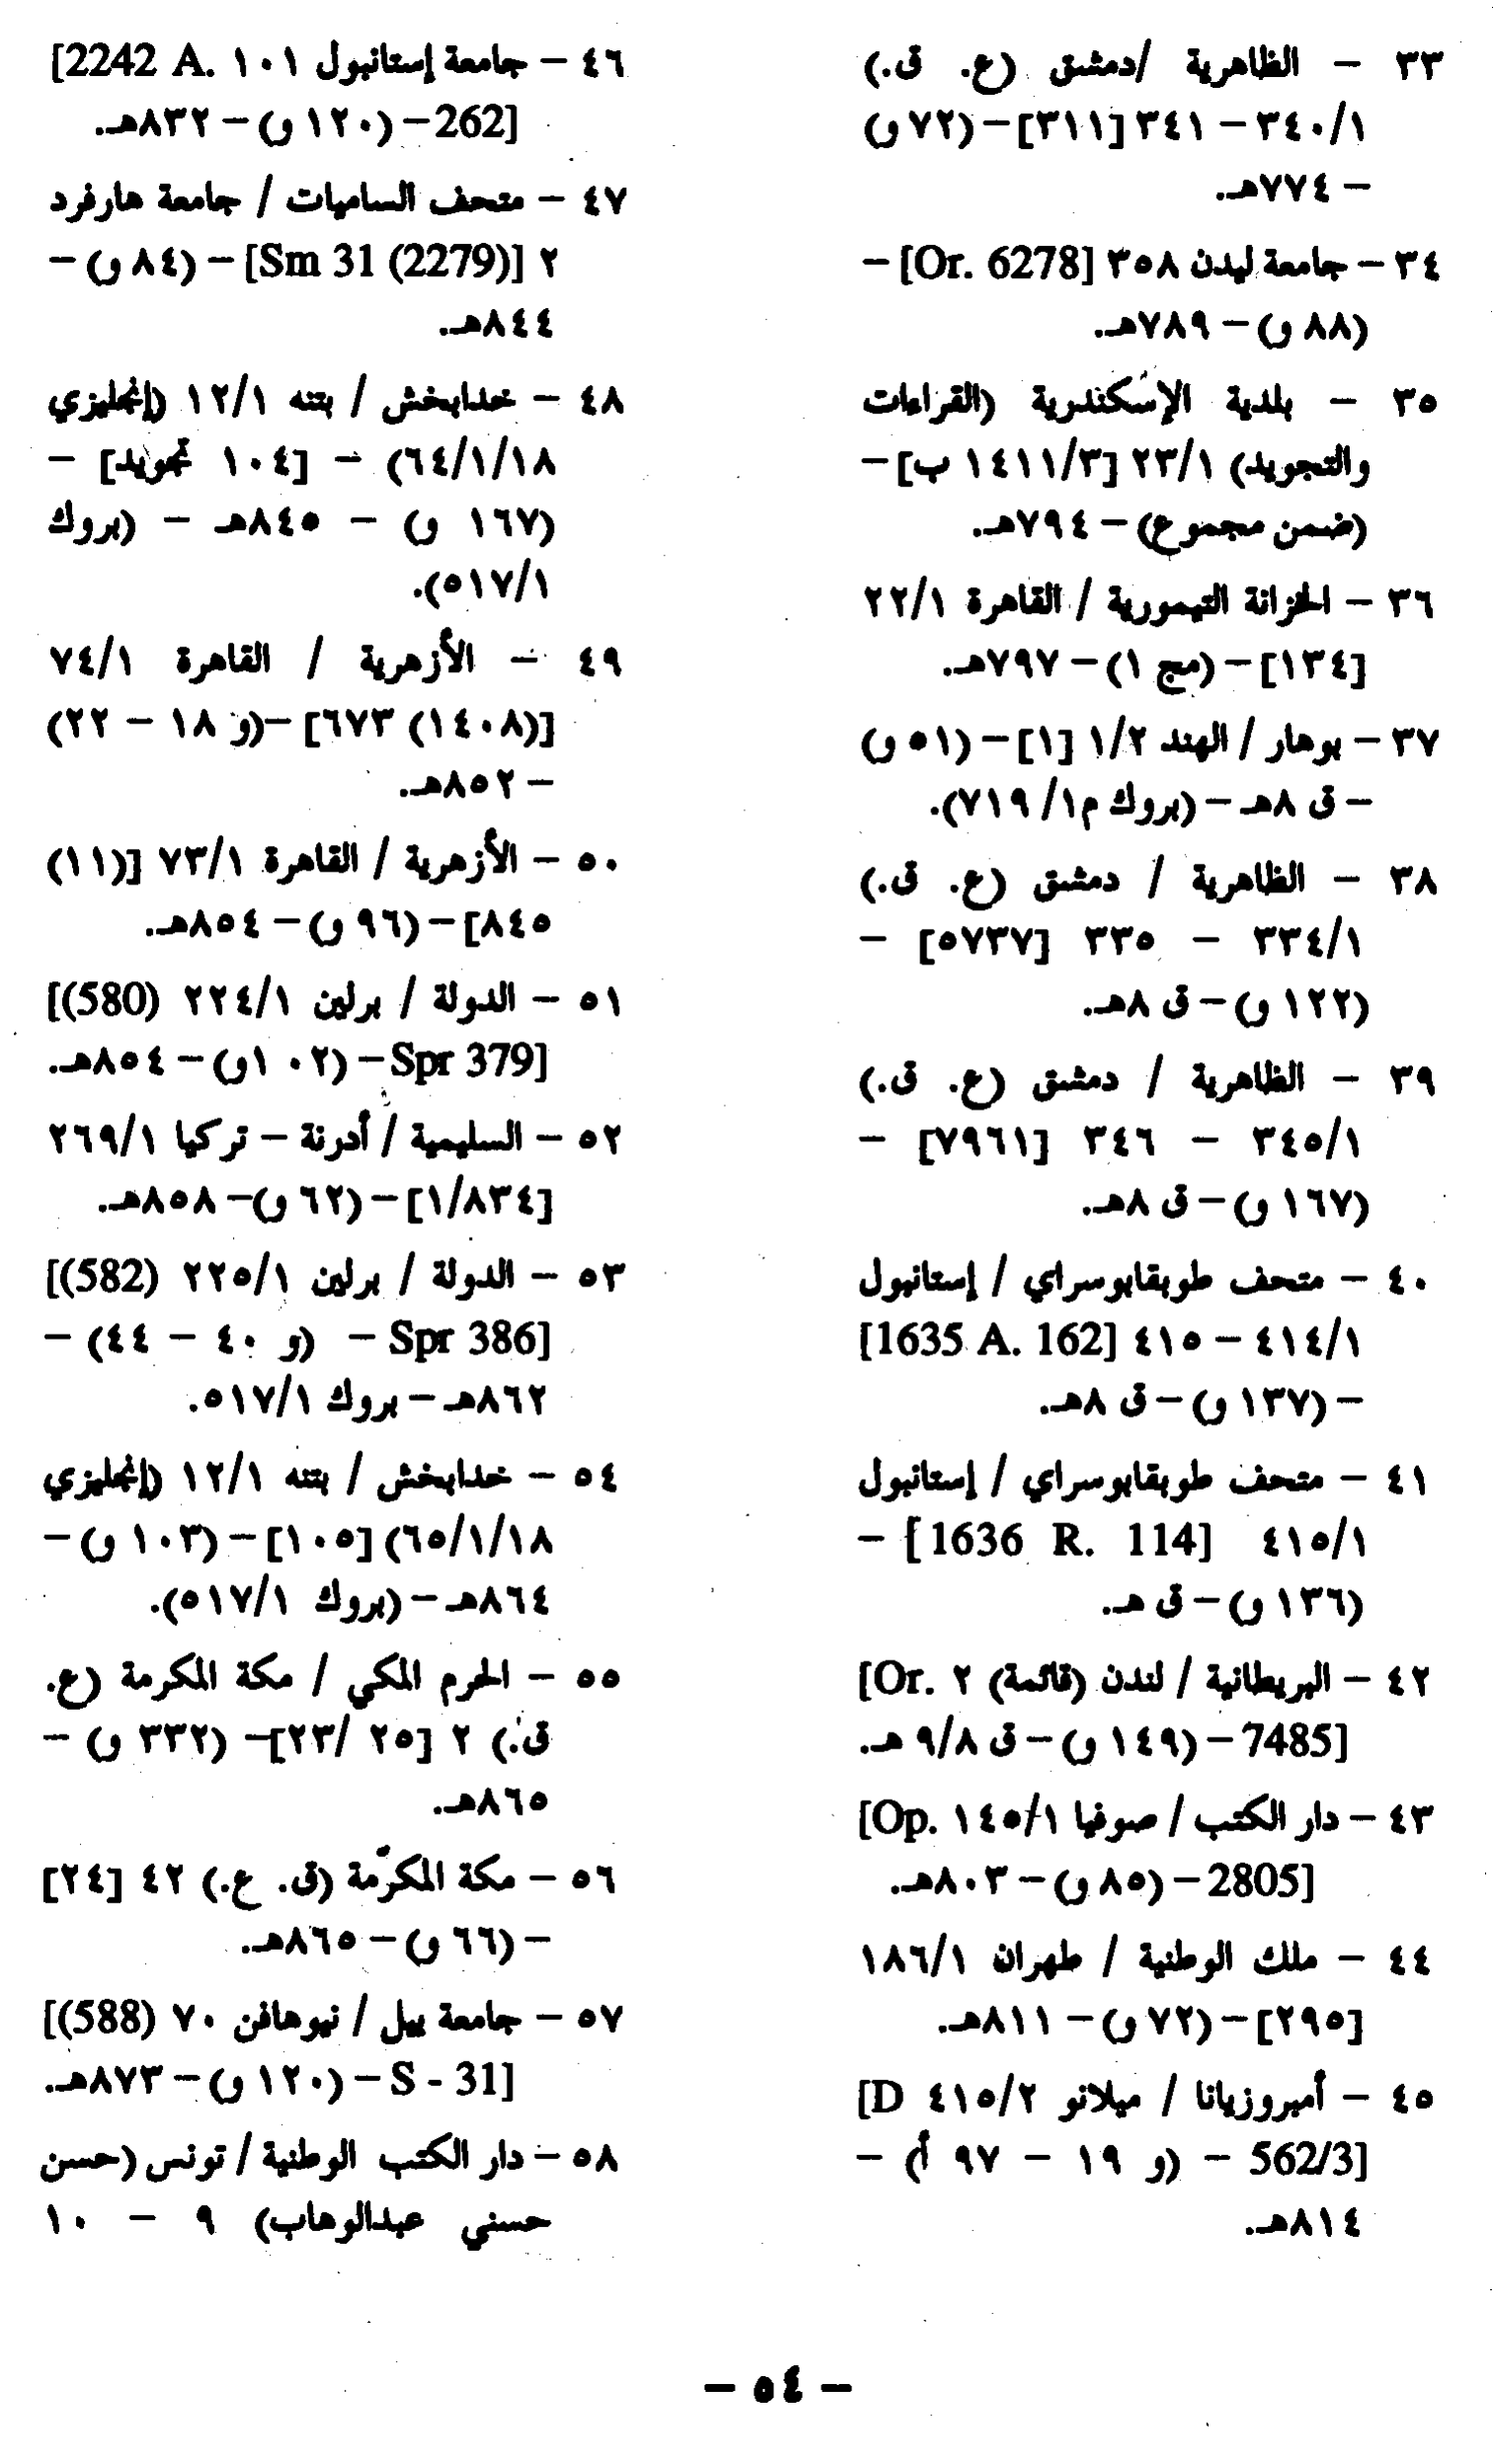 ٣٣ - الظاهرية /دمشق (ع. ق.)
٣٤٠/١ - ٣٤١ [٣١١] - (٧٢ و)
- ٧٧٤هـ.
٣٤ - جامعة ليدن ٣٥٨ [Or. 6278] -
(٨٨ و) - ٧٨٩هـ.
٣٥ - بلدية الإسكندرية (القراءات
والتجويد) ٢٣/١ [١٤١١/٣ ب] -
(ضمن مجموع) - ٧٩٤هـ.
٣٦ - الخزانة التيمورية / القاهرة ٢٢/١
[١٣٤] - (مج ١) - ٧٩٧هـ.
٣٧ - بوهار / الهند ١/٢ [١] - (٥١ و)
- ق ٨هـ - (بروك م١/ ٧١٩).
٣٨ - الظاهرية / دمشق (ع. ق.)
٣٣٤/١ - ٣٣٥ [٥٧٣٧] -
(١٢٢ و) - ق ٨هـ.
٣٩ - الظاهرية / دمشق (ع. ق.)
٣٤٥/١ - ٣٤٦ [٧٩٦١] -
(١٦٧ و) - ق ٨هـ.
٤٠ - متحف طوبقابوسراي / إستانبول
٤١٤/١ - ٤١٥ [1635 A. 162]
- (١٣٧ و) - ق ٨هـ.
٤١ - متحف طوبقابوسراي / إستانبول
٤١٥/١ [1636 R. 114] -
(١٣٦ و) - ق هـ.
٤٢ - البريطانية / لندن (قائمة) ٢ [Or.
7485] - (١٤٩ و) - ق ٩/٨ هـ.
٤٣ - دار الكتب / صوفيا ١٤٥/١ [Op.
2805] - (٨٥ و) - ٨٠٣هـ.
٤٤ - ملك الوطنية / طهران ١٨٦/١
[٢٩٥] - (٧٢ و) - ٨١١هـ.
٤٥ - أمبروزيانا / ميلانو ٤١٥/٢ [D
562/3] - (و ١٩ - ٩٧ أ) -
٨١٤هـ.
٤٦ - جامعة إستانبول ١٠١ [2242 A.
262] - (١٢٠ و) - ٨٣٢هـ.
٤٧ - متحف الساميات / جامعة هارفرد
٢ [Sm 31 (2279)] - (٨٤ و) -
٨٤٤هـ.
٤٨ - خدابخش / بتنه ١٢/١ (إنجليزي
٦٤/١/١٨) - [١٠٤ تجويد] -
(١٦٧ و) - ٨٤٥هـ - (بروك
٥١٧/١).
٤٩ - الأزهرية / القاهرة ٧٤/١
[(١٤٠٨) ٦٧٣] - (و ١٨ - ٢٢)
- ٨٥٢هـ.
٥٠ - الأزهرية / القاهرة ٧٣/١ [(١١)
٨٤٥] - (٩٦ و) - ٨٥٤هـ.
٥١ - الدولة / برلين ٢٢٤/١ [(580)
Spr 379] - (١٠٢و) - ٨٥٤هـ.
٥٢ - السليمية / أدرنة - تركيا ٢٦٩/١
[١/٨٣٤] - (٦٢ و) - ٨٥٨هـ.
٥٣ - الدولة / برلين ٢٢٥/١ [(582)
Spr 386] - (و ٤٠ - ٤٤) -
٨٦٢هـ - بروك ٥١٧/١.
٥٤ - خدابخش / بتنه ١٢/١ (إنجليزي
٦٥/١/١٨) [١٠٥] - (١٠٣ و) -
٨٦٤هـ - (بروك ٥١٧/١).
٥٥ - الحرم المكي / مكة المكرمة (ع.
ق.) ٢ [٢٥ /٢٣] - (٣٣٢ و) -
٨٦٥هـ.
٥٦ - مكة المكرّمة (ق. ع.) ٤٢ [٢٤]
- (٦٦ و) - ٨٦٥هـ.
٥٧ - جامعة ييل / نيوهافن ٧٠ [(588)
S - 31] - (١٢٠ و) - ٨٧٣هـ.
٥٨ - دار الكتب الوطنية / تونس (حسن
حسني عبدالوهاب) ٩ - ١٠
- ٥٤ -